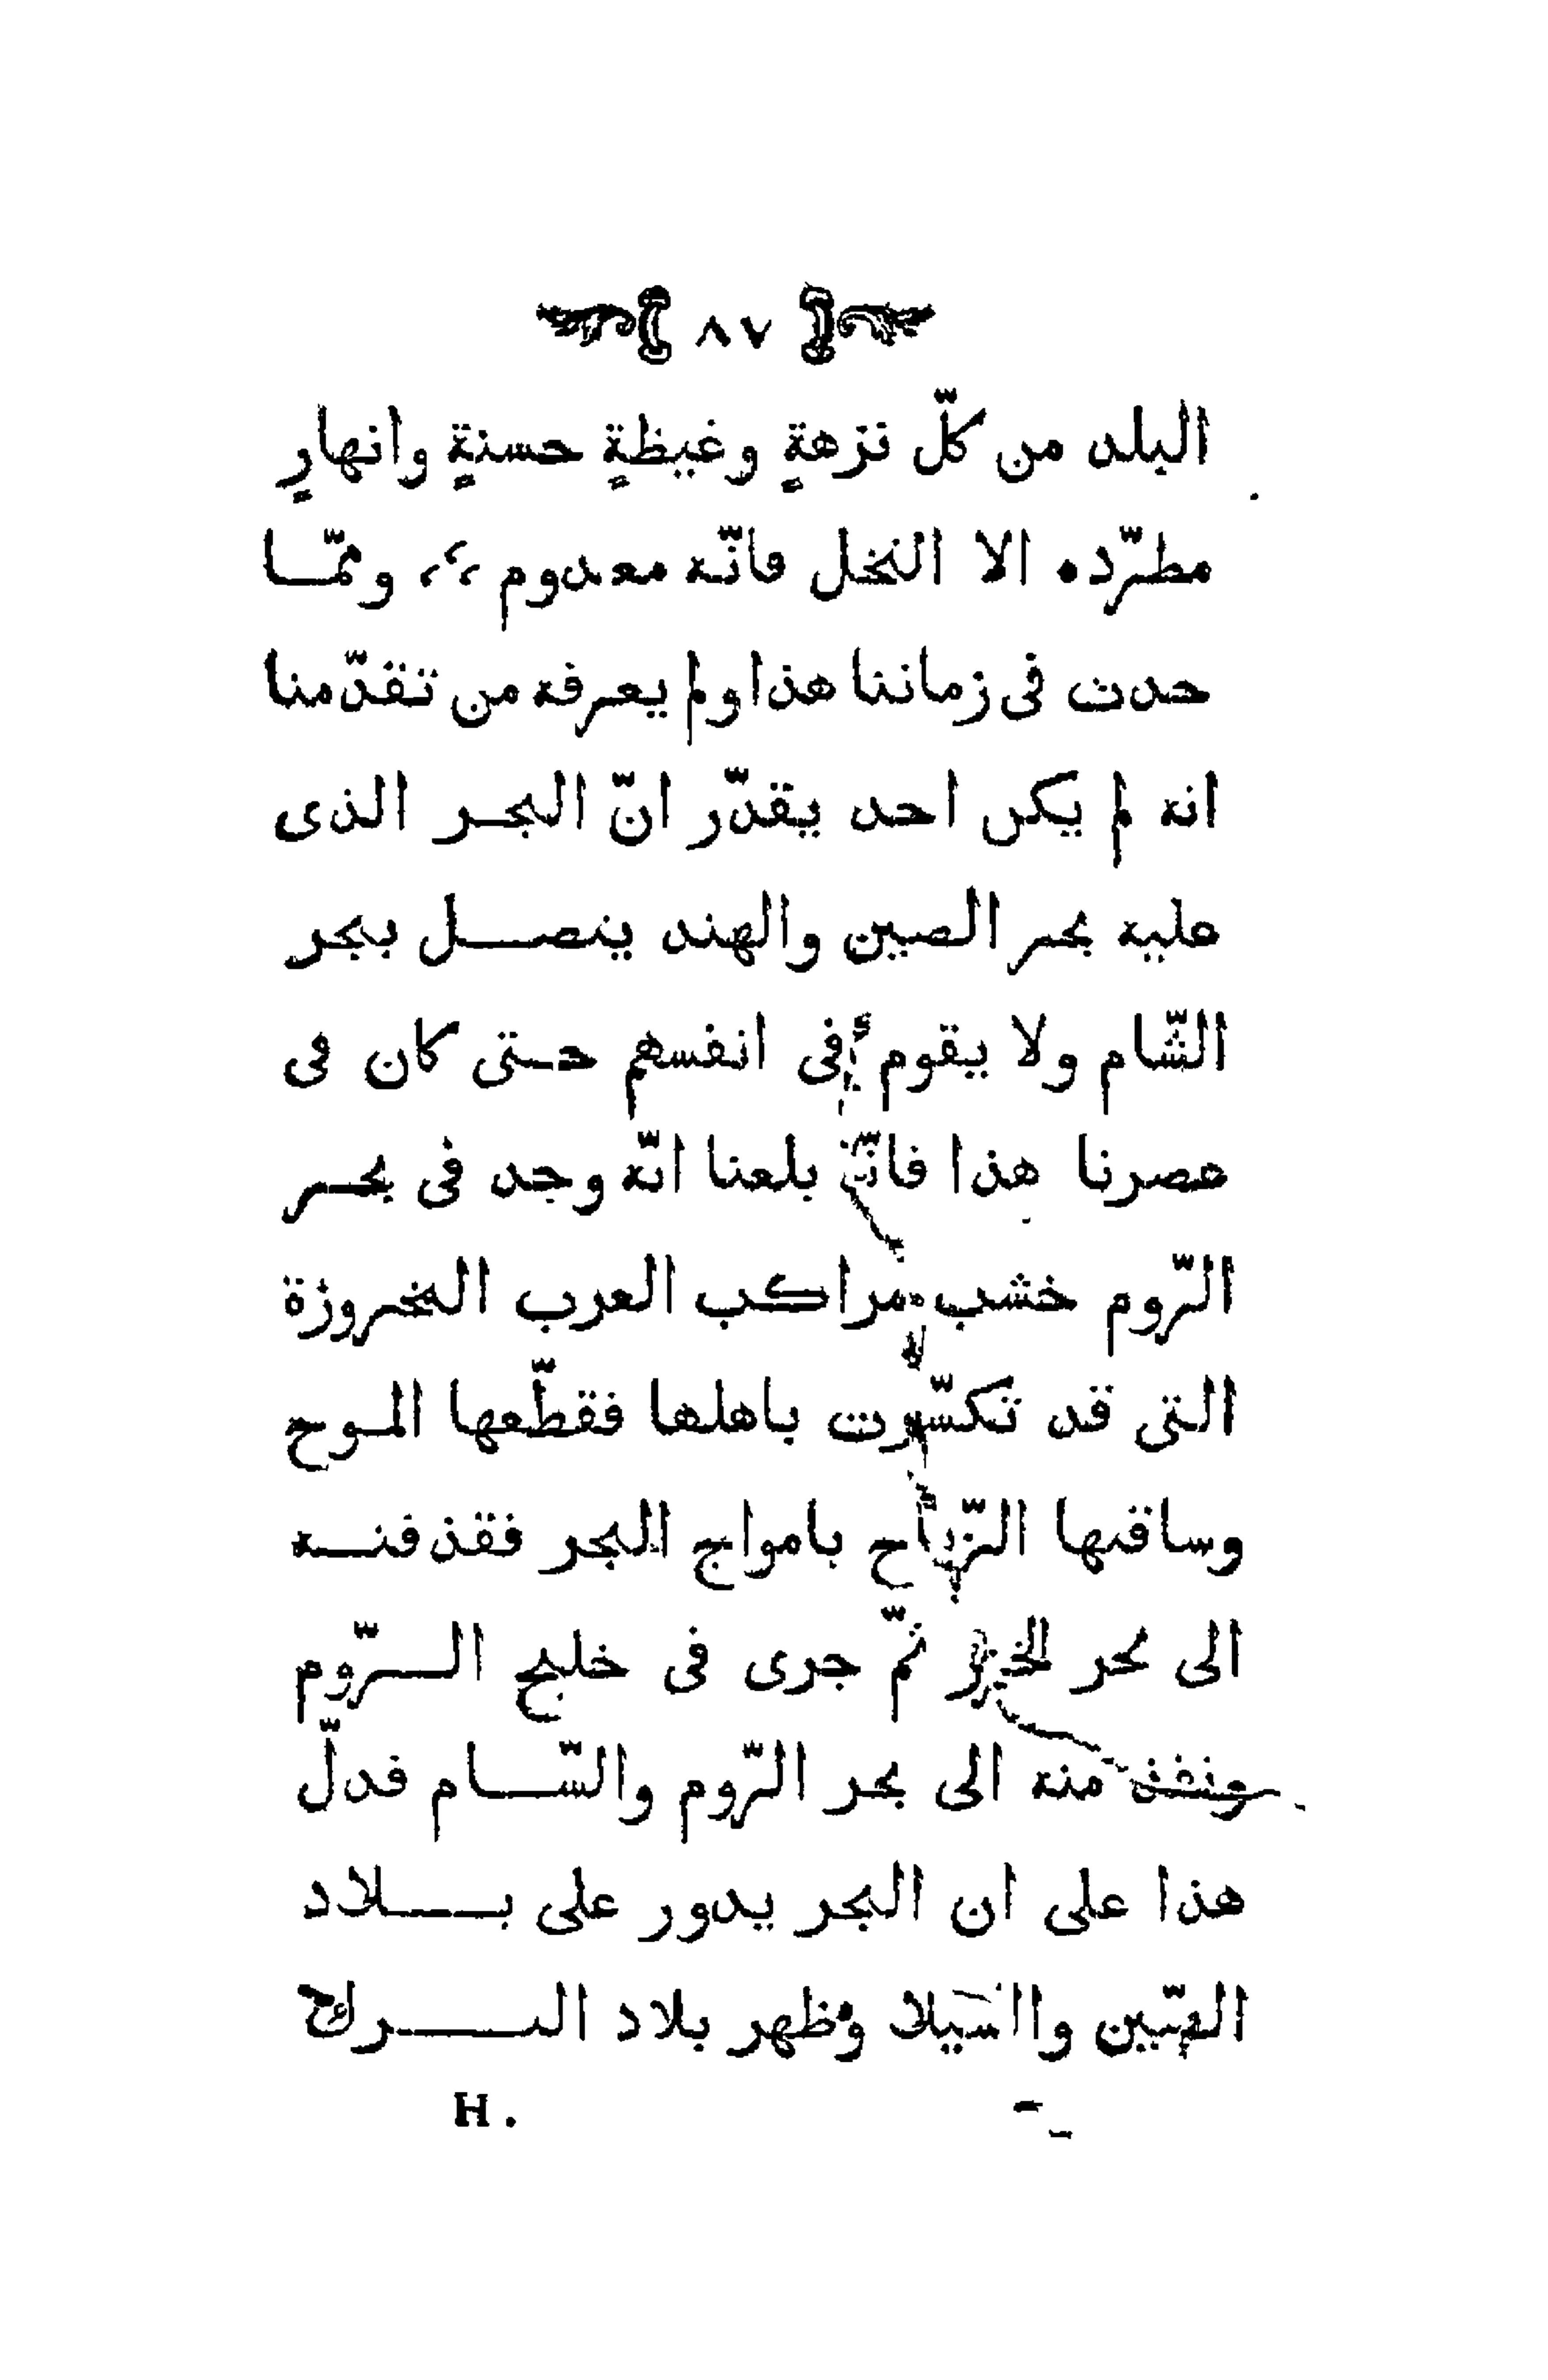 ٨٧
البلد من كلّ نزهةٍ وغيظةٍ حسنةٍ وانهارٍ
مطرّده الا النخل فانّه معدوم ،، وممّا
حدث فى زماننا هذا ولم يعرفه من تقدّمنا
انه لم يكن احد يقدّر انّ البحر الذى
عليه بحر الصين والهند يتصل ببحر
الشّام ولا يقوم فى انفسهم حتى كان فى
عصرنا هذا فانّه بلغنا انّه وجد فى بحر
الرّوم خشب مراكب العرب المخروزة
التى قد تكسّرت باهلها فقطّعها الموج
وساقتها الرّياح بامواج البحر فقذفته
الى بحر الخزر ثمّ جرى فى خليج الرّوم
ونفذ منه الى بحر الرّوم والشّام فدلّ
هذا على ان البحر يدور على بلاد
الصّين والسيلا وظهر بلاد الترك
H.